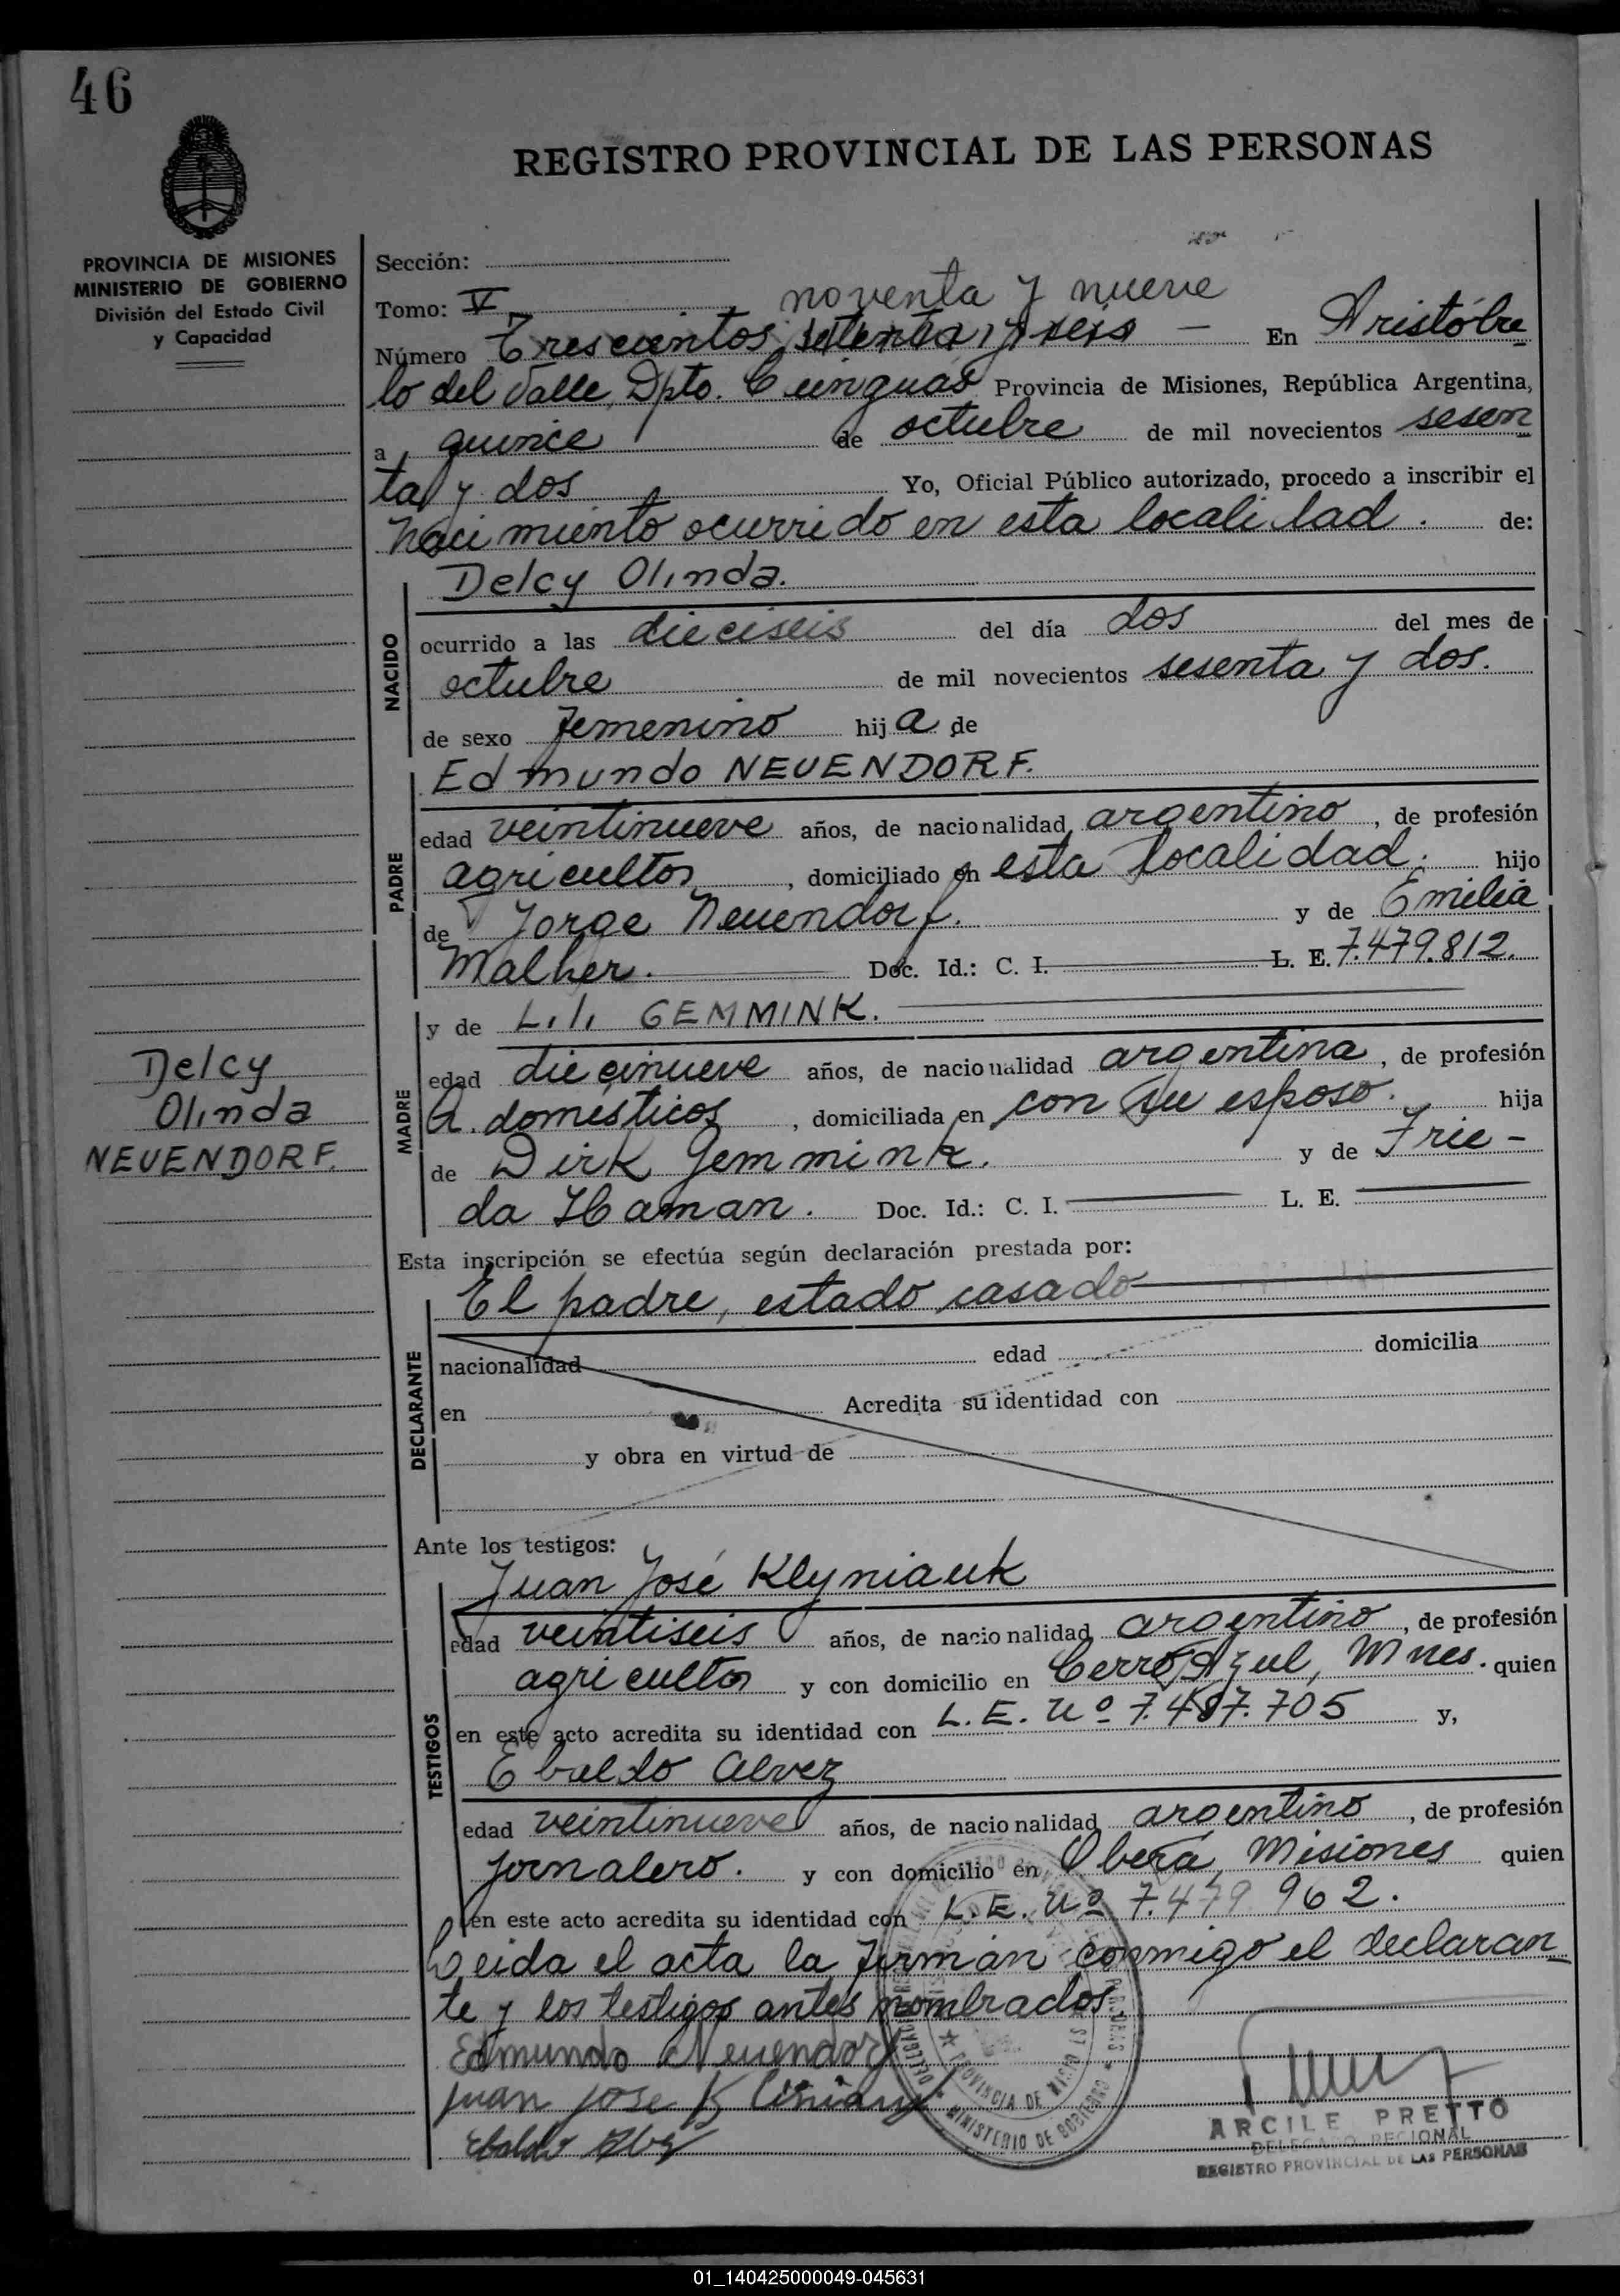 46
REGISTRO PROVINCIAL DE LAS PERSONAS
PROVINCIA DE MISIONES
MINISTERIO DE GOBIERNO
División del Estado Civil
y Capacidad
Sección:
Tomo: V
noventa y nueve
Número Trescientos setenta y seis — En Aristóbu
lo del Valle, Dpto. Cainguas Provincia de Misiones, República Argentina,
a quince de octubre de mil novecientos sesen
ta y dos Yo, Oficial Público autorizado, procedo a inscribir el
nacimiento ocurrido en esta localidad. de:
Delcy Olinda.
NACIDO
ocurrido a las dieciseis del día dos del mes de
octubre de mil novecientos sesenta y dos.
de sexo femenino hija de
Edmundo NEUENDORF.
PADRE
edad veintinueve años, de nacionalidad argentino, de profesión
agricultor, domiciliado en esta localidad. hijo
de Jorge Neuendorf. y de Emilia
Malher. Doc. Id.: C. I. L. E. 7.479.812.
y de Lili GEMMINK.
MADRE
edad diecinueve años, de nacionalidad argentina, de profesión
Q. domésticos, domiciliada en con su esposo. hija
de Dirk Gemmink. y de Frie-
da Haman. Doc. Id.: C. I. L. E.
Delcy
Olinda
NEUENDORF.
Esta inscripción se efectúa según declaración prestada por:
El padre, estado casado
DECLARANTE
nacionalidad edad domicilia
en Acredita su identidad con
y obra en virtud de
Ante los testigos:
Juan José Klyniauk
TESTIGOS
edad veintiseis años, de nacionalidad argentino, de profesión
agricultor y con domicilio en Cerro Azul, Mnes. quien
en este acto acredita su identidad con L.E. Nº 7.487.705 y,
Ebaldo Alvez
edad veintinueve años, de nacionalidad argentino, de profesión
jornalero. y con domicilio en Oberá, Misiones quien
en este acto acredita su identidad con L.E. Nº 7.479.962.
Leida el acta la firman conmigo el declaran
te y los testigos antes nombrados
Edmundo Neuendorf
Juan Jose
Ebaldo
PROVINCIA DE MISIONES
MINISTERIO DE GOBIERNO
ARCILE PRETTO
DELEGADO REGIONAL
REGISTRO PROVINCIAL DE LAS PERSONAS
01_140425000049-045631